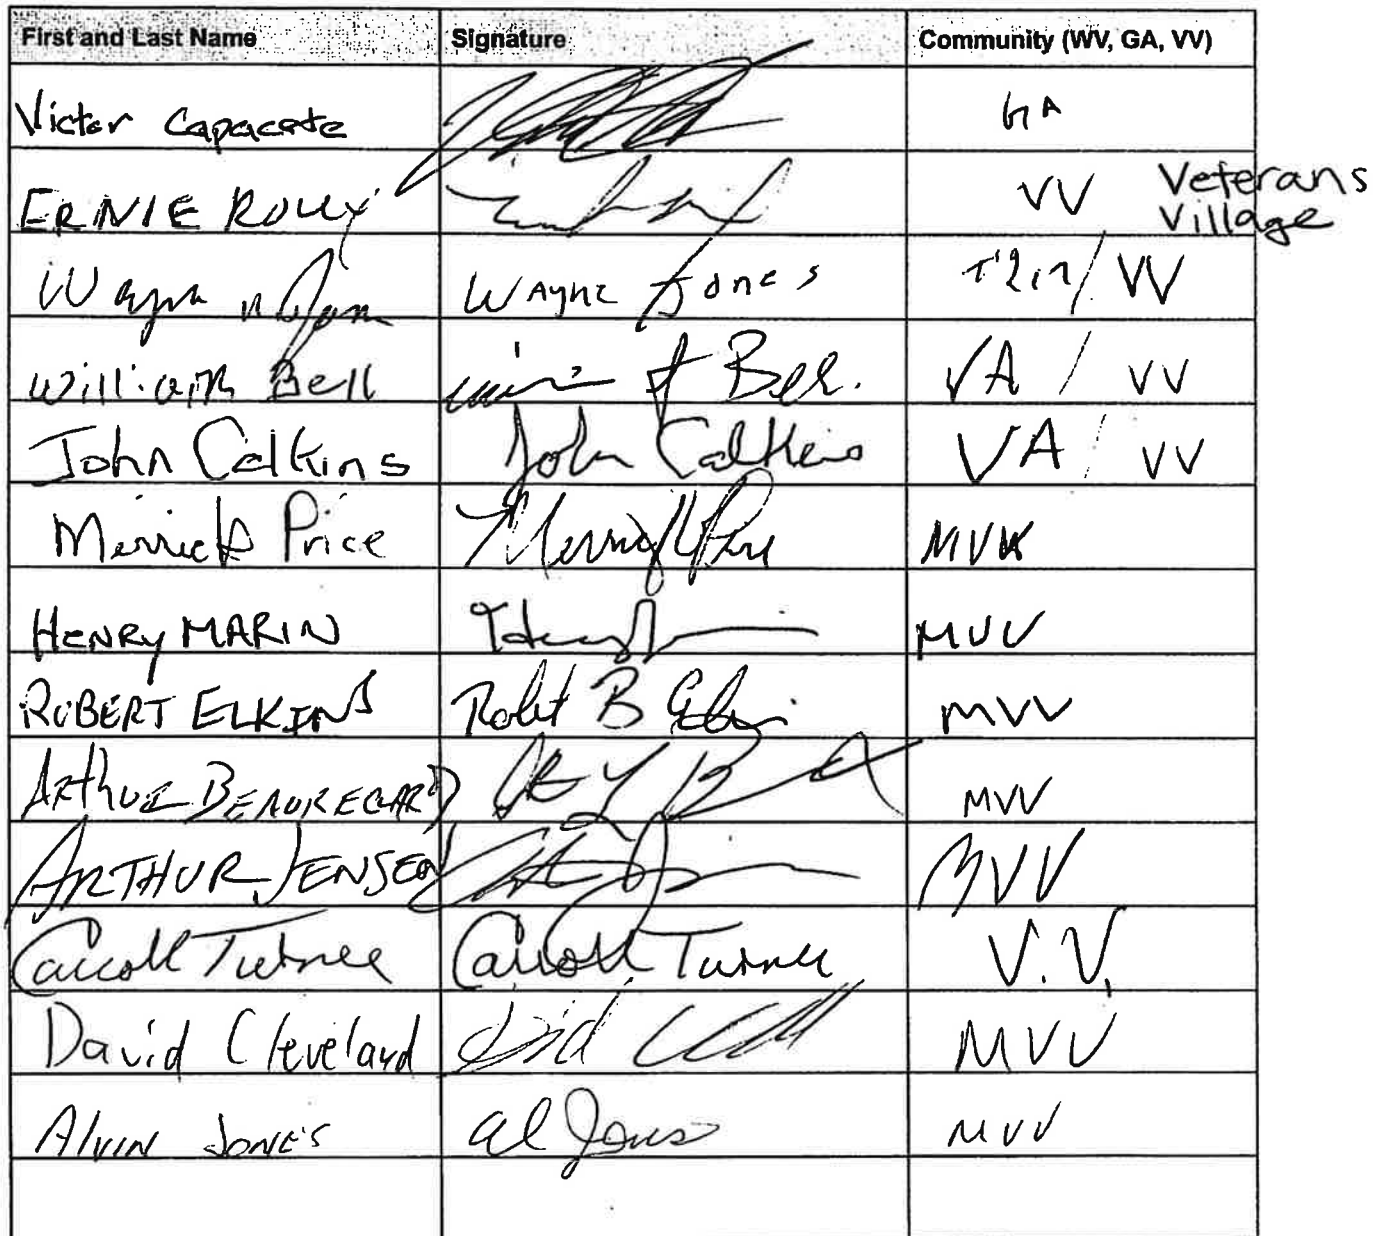 First and Last Name Signature Community (WV, GA, VV)
Victor Capacete GA
ERNIE VV Veterans
Village
Wayne Jones / VV
William Bell Bell. VA / VV
John Calkins John Calkins VA / VV
Merrick Price Merrick Price
HENRY MARIN Henry MVV
ROBERT ELKINS Robert B Elkins MVV
Arthur BEAUREGARD MVV
ARTHUR JENSEN MVV
Carroll Turner Carroll Turner V.V.
David Cleveland David MVV
Alvin JONES Al Jones MVV